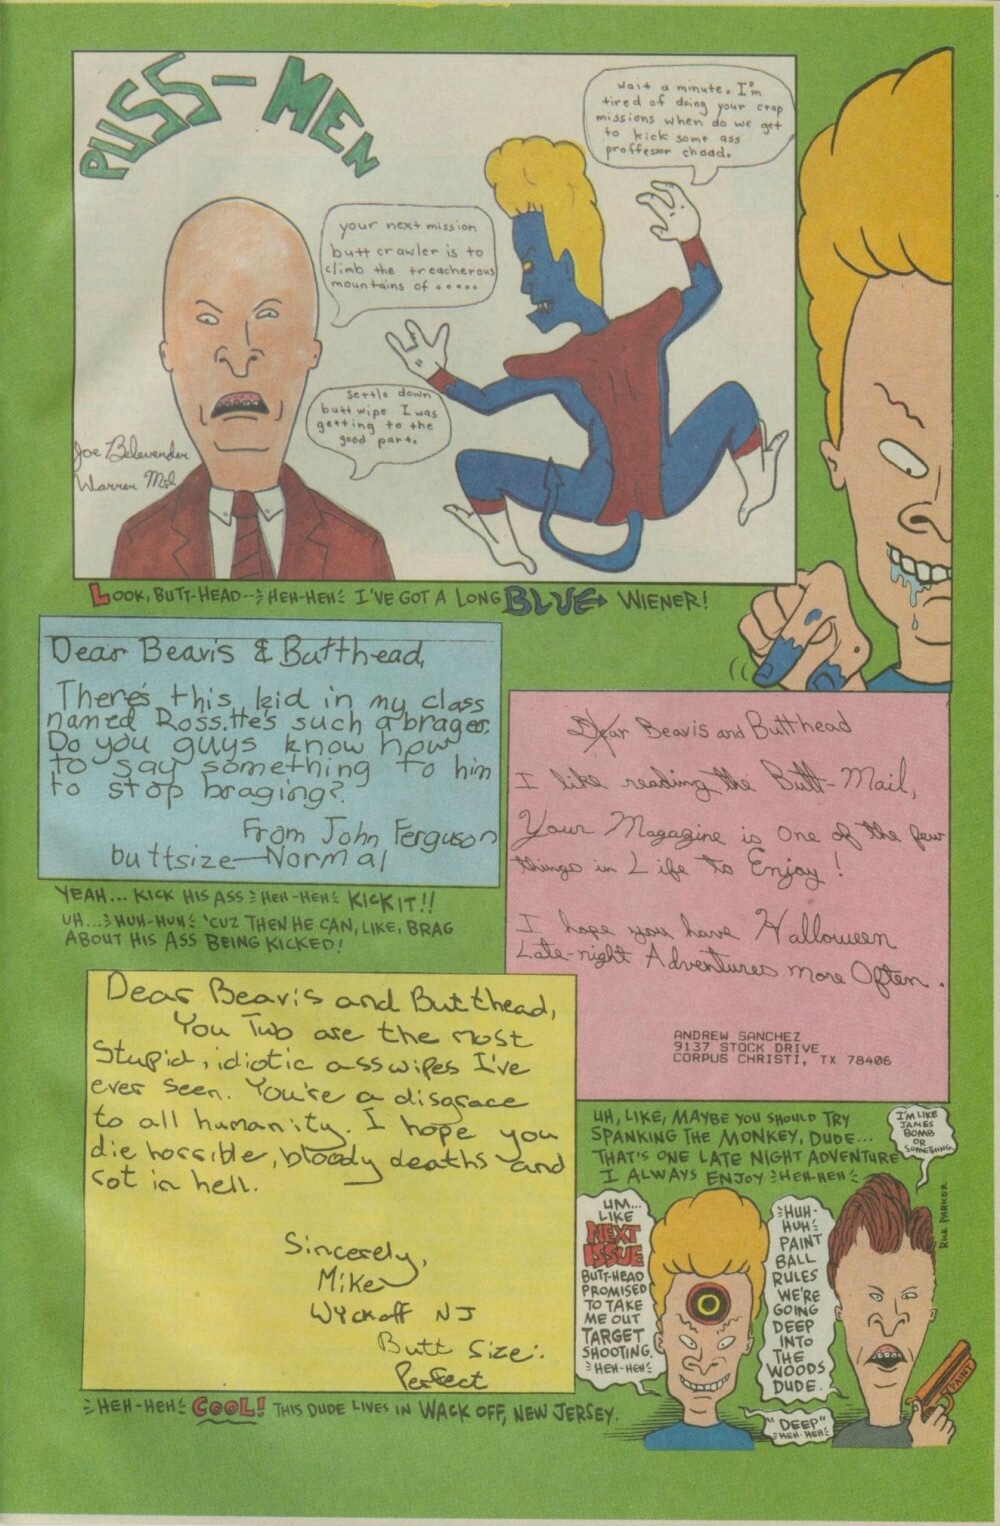 PUSS-MEN
wait a minute. I'm
tired of doing your crap
missions when do we get
to kick some ass
proffessor choad.
your next mission
butt crawler is to
climb the treacherous
mountains of .....
settle down
buttwipe I was
getting to the
good part.
Joe
Warren
LOOK, BUTT-HEAD--HEH-HEH I'VE GOT A LONG BLUE WIENER!
Dear Beavis & Butthead,
There's this kid in my class
named Ross. He's such a brager.
Do you guys know how
to say something to him
to stop braging?
From John Ferguson
buttsize—Normal
YEAH... KICK HIS ASS HEH-HEH KICK IT!!
UH... HUH-HUH 'CUZ THEN HE CAN, LIKE, BRAG
ABOUT HIS ASS BEING KICKED!
Dear Beavis and Butthead
I like reading the Butt-Mail,
Your Magazine is one of the few
things in Life to Enjoy!
I hope you have Halloween
Late-night Adventures more Often.
ANDREW SANCHEZ
9137 STOCK DRIVE
CORPUS CHRISTI, TX 78406
UH, LIKE, MAYBE YOU SHOULD TRY
SPANKING THE MONKEY, DUDE...
THAT'S ONE LATE NIGHT ADVENTURE
I ALWAYS ENJOY HEH-HEH
Dear Beavis and Butthead,
You Two are the most
Stupid, idiotic asswipes I've
ever seen. You're a disgrace
to all humanity. I hope you
die horrible, bloody deaths and
rot in hell.
Sincerely,
Mike
Wyckoff NJ
Butt Size:
Perfect
HEH-HEH COOL! THIS DUDE LIVES IN WACK OFF, NEW JERSEY.
UM...
LIKE
NEXT
ISSUE
BUTT-HEAD
PROMISED
TO TAKE
ME OUT
TARGET
SHOOTING.
HEH-HEH
HUH-
HUH
PAINT
BALL
RULES
WE'RE
GOING
DEEP
INTO
THE
WOODS
DUDE.
"DEEP"
HEH-HEH
I'M LIKE
JAMES
BOMB
OR
SOMETHING.
PAINT
RICK PARKER